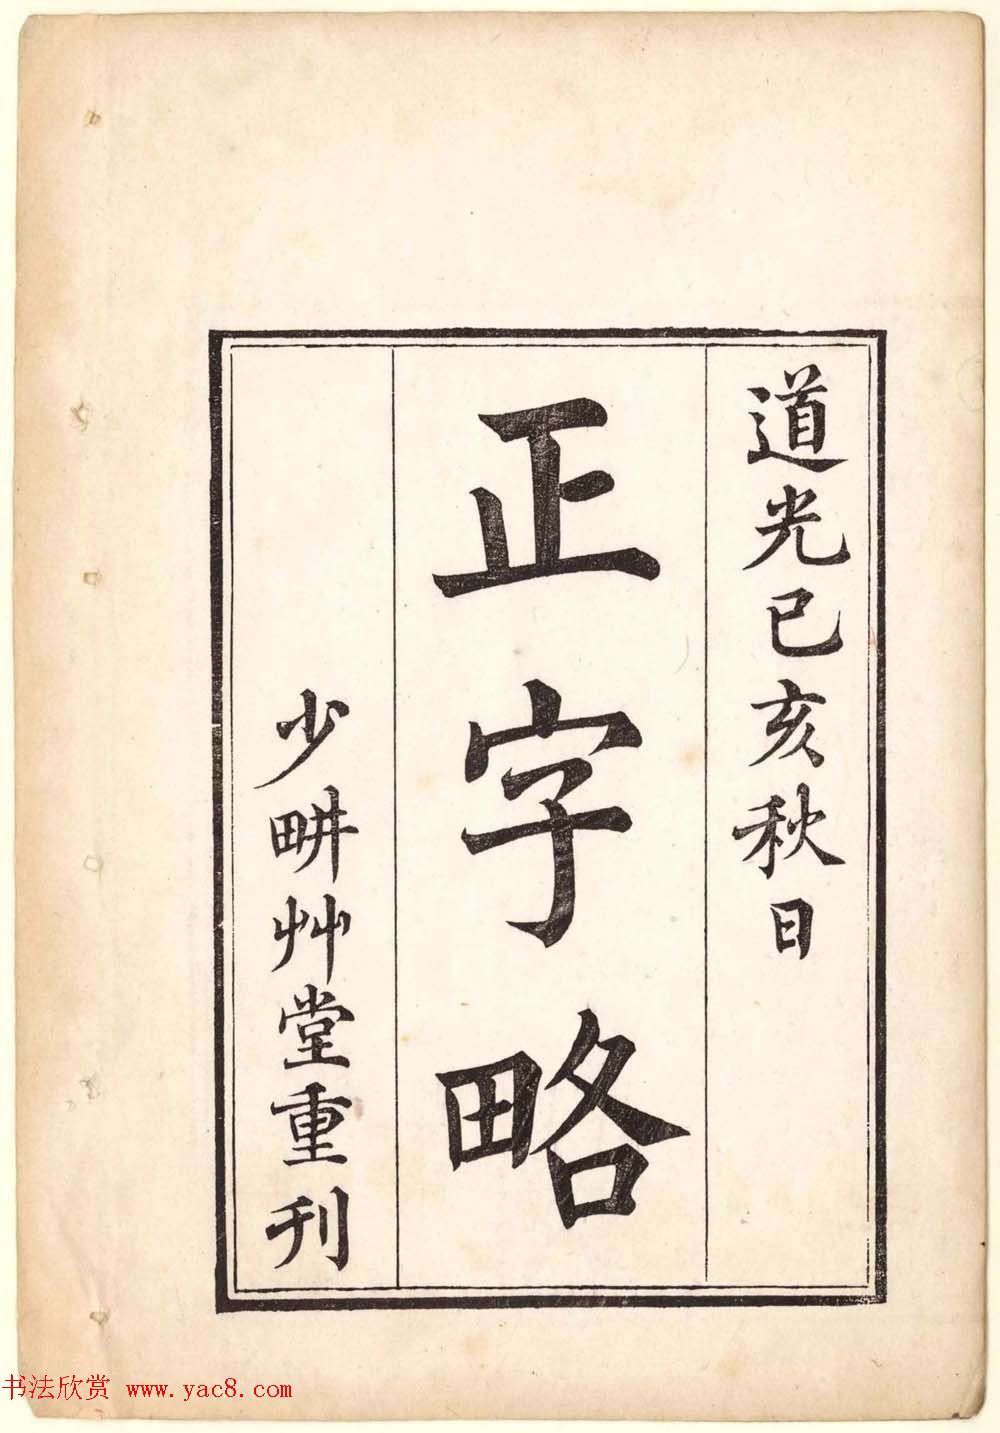 道光己亥秋日
正字略
少畊艸堂重刊
书法欣赏 www.yac8.com